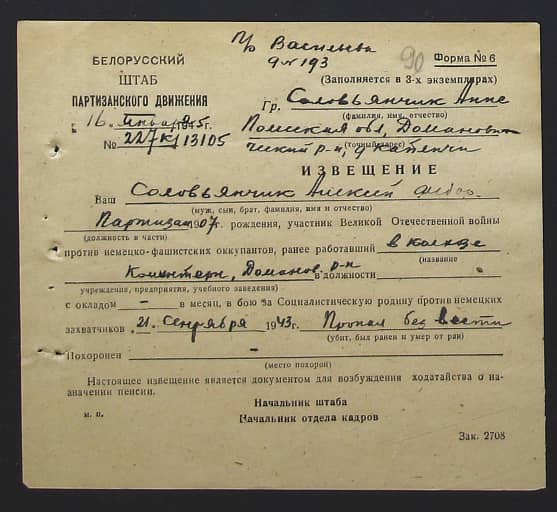 п/о Васильева
д № 193
90
Форма № 6
БЕЛОРУССКИЙ
ШТАБ
ПАРТИЗАНСКОГО ДВИЖЕНИЯ
(Заполняется в 3-х экземплярах)
Гр. Соловьянчик Анне
(фамилия, имя, отчество)
16 января 1945г.
№ 227к/13105
Полесская обл, Доманович
(точный адрес)
ческий р-н,
ИЗВЕЩЕНИЕ
Ваш Соловьянчик Алексей
(муж, сын, брат, фамилия, имя и отчество)
Партизан 1907г. рождения, участник Великой Отечественной войны
(должность в части)
против немецко-фашистских оккупантов, ранее работавший в колхозе
(название
Коминтерн, Доманов. р-н в должности
учреждения, предприятия, учебного заведения)
с окладом – в месяц, в бою за Социалистическую родину против немецких
захватчиков 21. сентября 1943г. Пропал без вести
(убит, был ранен и умер от ран)
Похоронен –
(место похорон)
Настоящее извещение является документом для возбуждения ходатайства о на-
значении пенсии.
Начальник штаба
м. п.
Начальник отдела кадров
Зак. 2708